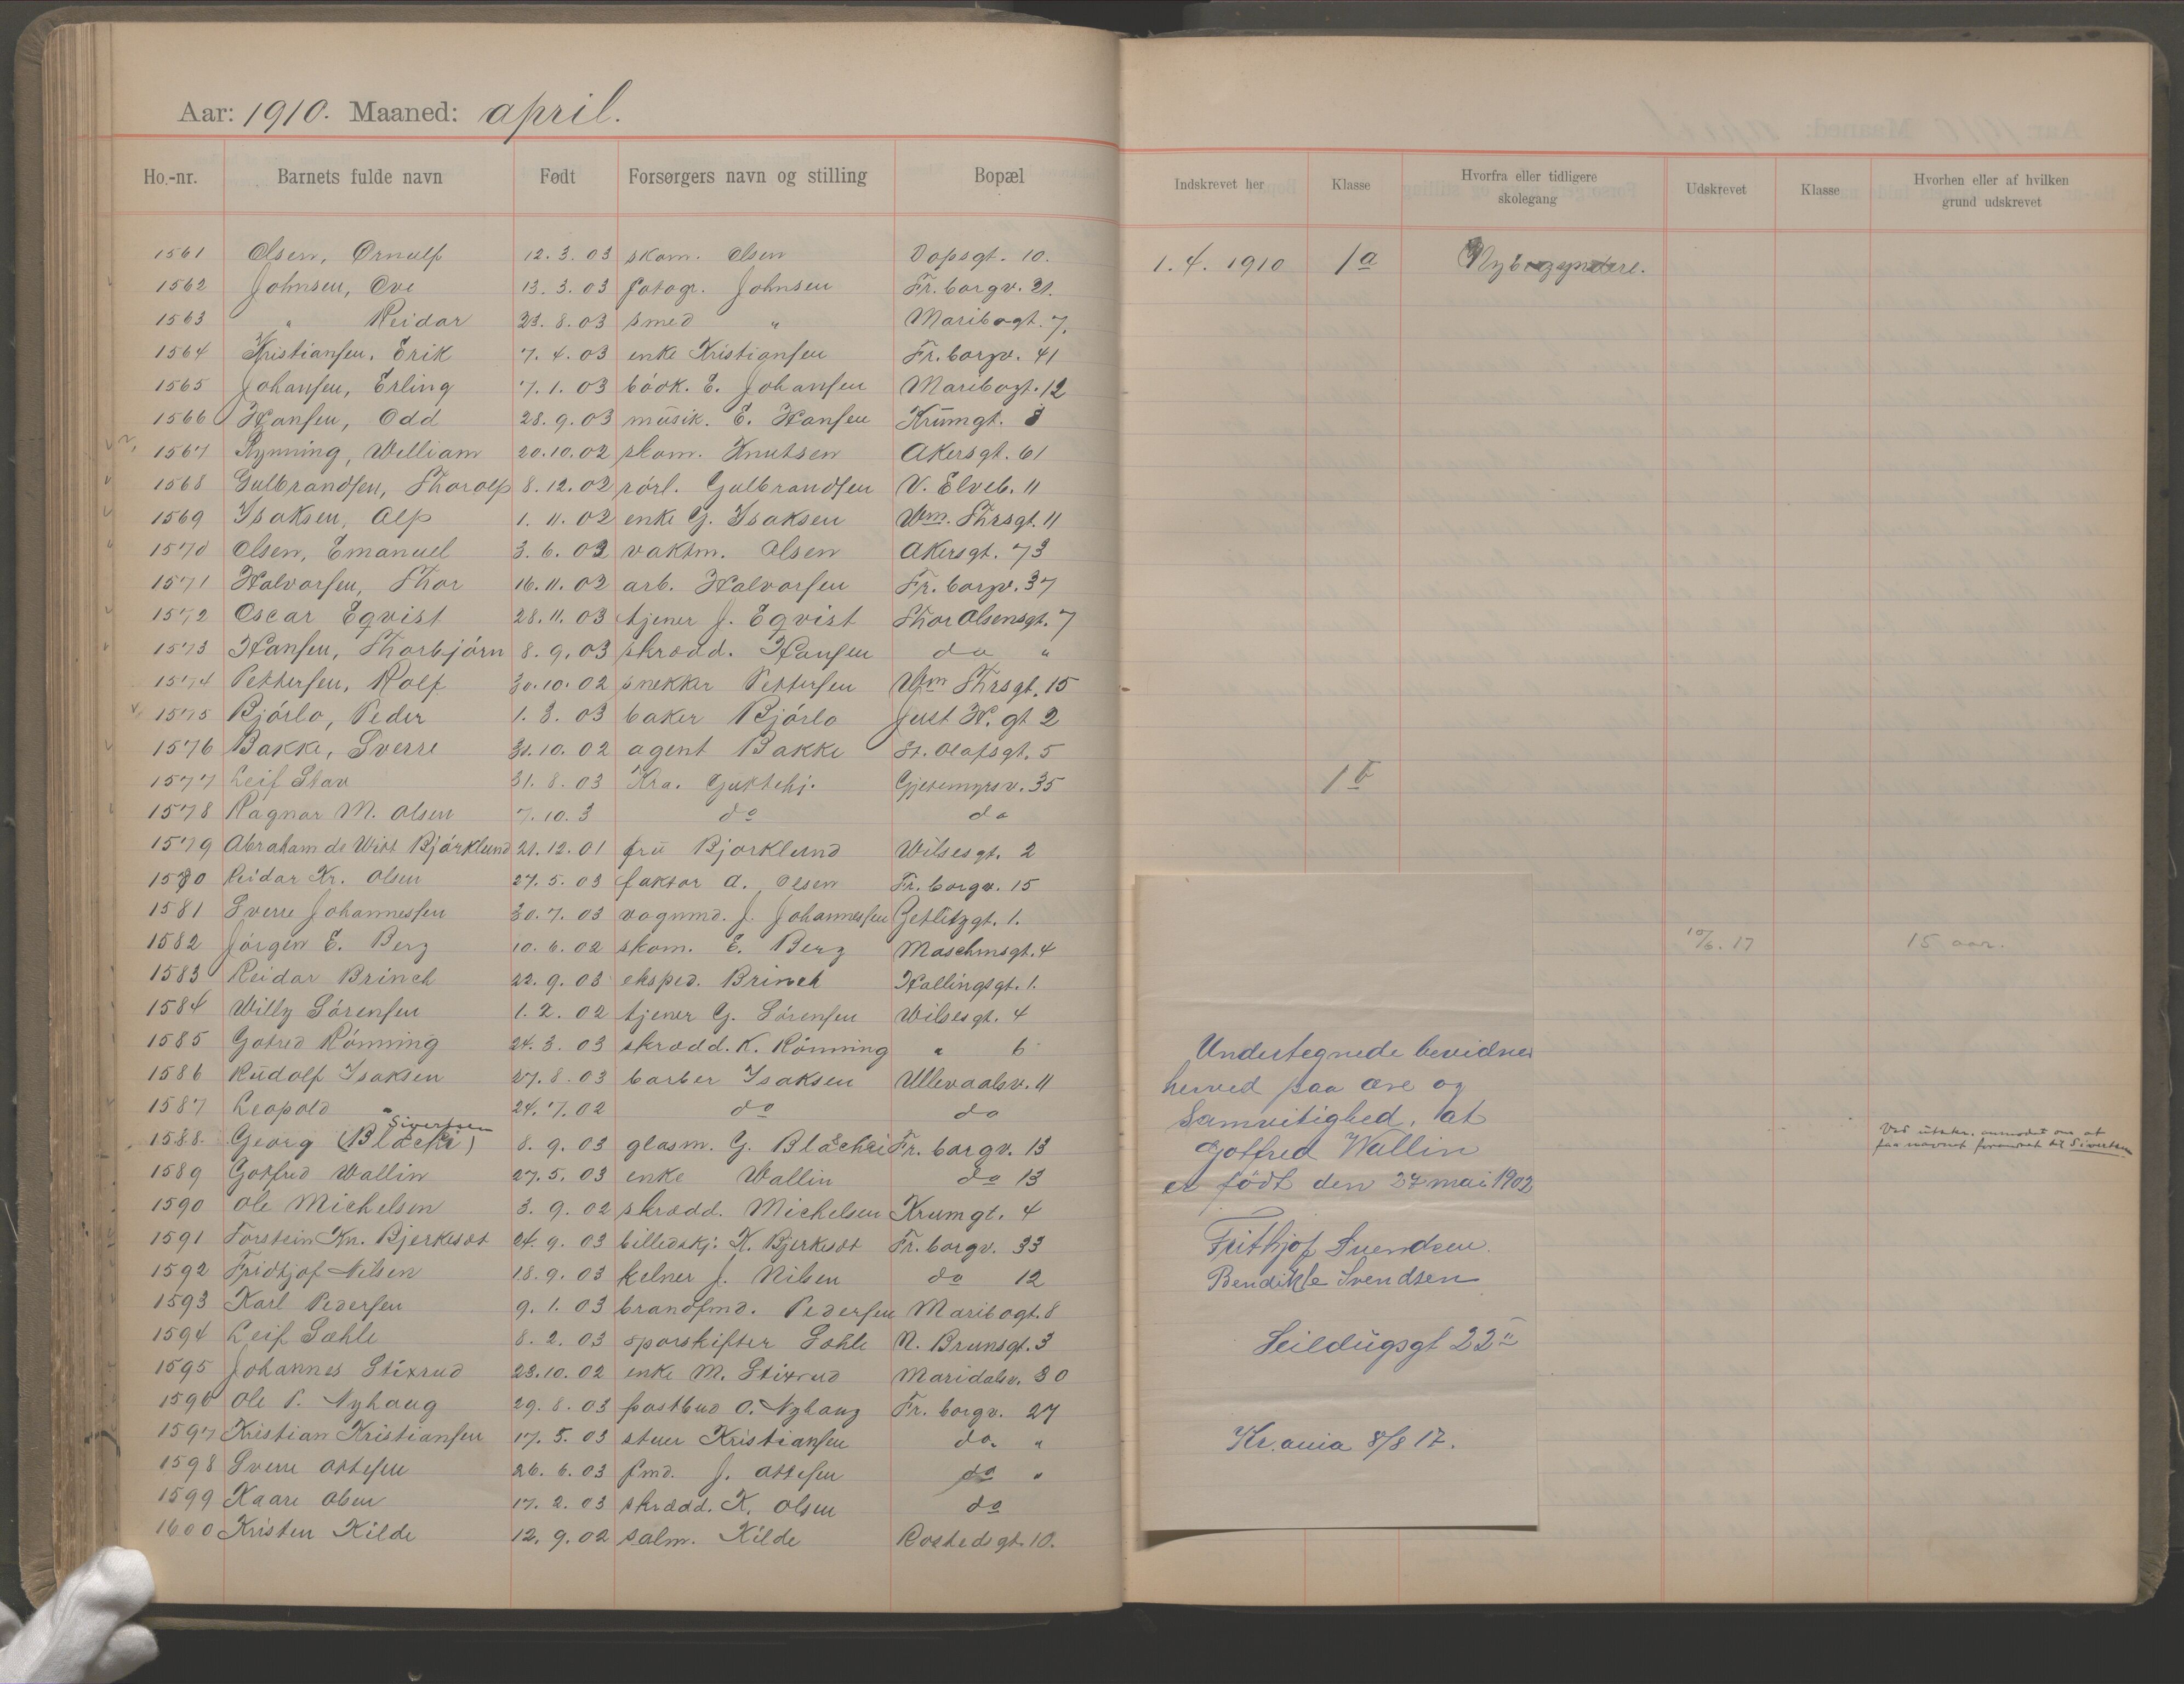 Aar: 1910. Maaned: april.
Ho.-nr. Barnets fulde navn Født Forsørgers navn og stilling Bopæl Indskrevet her Klasse Hvorfra eller tidligere skolegang Udskrevet Klasse Hvorhen eller af hvilken grund udskrevet
1561 Olsen, Ørnulf 12. 3. 03 skom. Olsen Dopsgt. 10. 1. 4. 1910 1a Nybegyndere.
1562 Johnsen, Ove 13. 3. 03 fotogr. Johnsen Fr. borgv. 21.
1563 " Reidar 23. 8. 03 smed " Maribogt. 7.
1564 Kristiansen, Erik 7. 4. 03 enke Kristiansen Fr. borgv. 41
1565 Johansen, Erling 7. 1. 03 bódk. E. Johansen Maribogt. 12
1566 Hansen, Odd 28. 9. 03 musik. E. Hansen Krumgt. 8
1567 Rynning, William 20. 10. 02 skom. Knutsen Akersgt. 61
1568 Gulbrandsen, Thorolf 8. 12. 02 rórl. Gulbrandsen V. Elveb. 11
1569 Isaksen, Alf 1. 11. 02 enke G. Isaksen Wm. Thrsgt. 11
1570 Olsen, Emanuel 3. 6. 03 vaktm. Olsen Akersgt. 73
1571 Halvorsen, Thor 16. 11. 02 arb. Halvorsen Fr. borgv. 37
1572 Oscar Eqvist 28. 11. 03 tjener J. Eqvist Thor Olsensgt. 7
1573 Hansen, Thorbjórn 8. 9. 03 skrædd. Hansen do "
1574 Pettersen, Rolf 30. 10. 02 snekker Pettersen Wm Thrsgt. 15
1575 Bjórlo, Peder 1. 3. 03 baker Bjórlo Just H. gt 2
1576 Bakke, Sverre 31. 10. 02 agent Bakke St. Olafsgt. 5
1577 Leif Stav 31. 8. 03 Kra. Guttehj. Gjetemyrsv. 35 1b
1578 Ragnar M. Olsen 7. 10. 3 do do
1579 Abraham de Witt Bjórklund 21. 12. 01 fru Bjorklund Wilsesgt. 2
1580 Reidar Kr. Olsen 27. 5. 03 faktor A. Olsen Fr. borgv. 15
1581 Sverre Johannessen 30. 7. 03 vognmd. J. Johannessen Getlitzgt. 1.
1582 Jórgen E. Berg 10. 6. 02 skom. E. Berg Maschmsgt. 4 10/6. 17 15 aar.
1583 Reidar Brinch 22. 9. 03 eksped. Brinch Hallingsgt. 1.
1584 Willy Sórensen 1. 2. 02 tjener G. Sórensen Wilsesgt. 4
1585 Gotred Rónning 24. 3. 03 skrædd. K. Rónning " 6
1586 Rudolf Isaksen 27. 8. 03 barber Isaksen Ullevaalsv. 11
1587 Leopold " 24. 7. 02 do do
Sivertsen
1588. Georg (Blacki) 8. 9. 03 glasm. G. Blachei Fr. borgv. 13
1589 Gotfred Wallin 27. 5. 03 enke Wallin do 13
1590 Ole Michelsen 3. 9. 02 skrædd. Michelsen Krumgt. 4
1591 Torstein Kn. Bjerkesot 24. 9. 03 billedskj. K. Bjerkesot Fr. borgv. 33
1592 Fridtjof Nilsen 18. 9. 03 kelner J. Nilsen do 12
1593 Karl Pedersen 9. 1. 03 brandfmd. Pedersen Maribogt. 8
1594 Leif Sæhle 8. 2. 03 sporskifter Sæhle N. Brunsgt. 3
1595 Johannes Stixrud 23. 10. 02 enke M. Stixrud Maridalsv. 30
1596 Ole P. Nyhaug 29. 8. 03 postbud O. Nyhaug Fr. borgv. 27
1597 Kristian Kristiansen 17. 5. 03 stuer Kristiansen do. "
1598 Sverre Ottesen 26. 6. 03 fmd. J. Ottesen do "
1599 Kaare Olsen 17. 2. 03 skrædd. K. Olsen do
1600 Kristen Kilde 12. 9. 02 salm. Kilde Rostedsgt. 10.
Undertegnede bevidner
herved paa ære og
Samvitighed, at
Gotfred Wallin
er födt den 27 mai 1902
Frithjof Svendsen.
Bendikte Svendsen
Seildugsgt 22 II
Kr.ania 8/8 17.
Ved utskr. anmodet om at
faa navnet forandret til Sivertsen